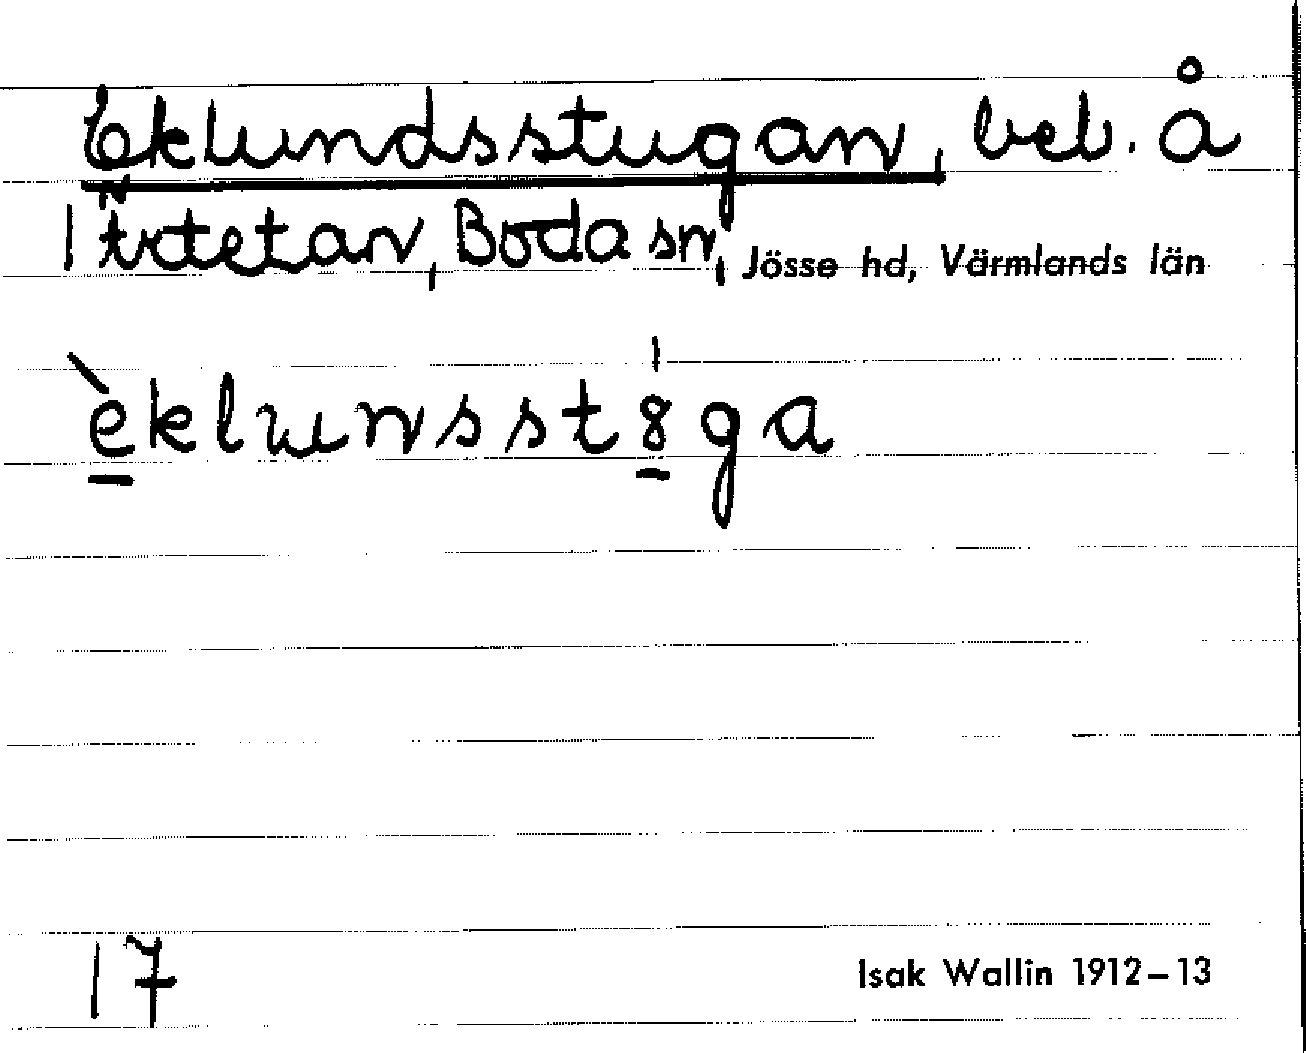 Eklundsstugan, beb. å
Boda sn, Jösse hd, Värmlands län
èklunsst8ga
17
Isak Wallin 1912–13